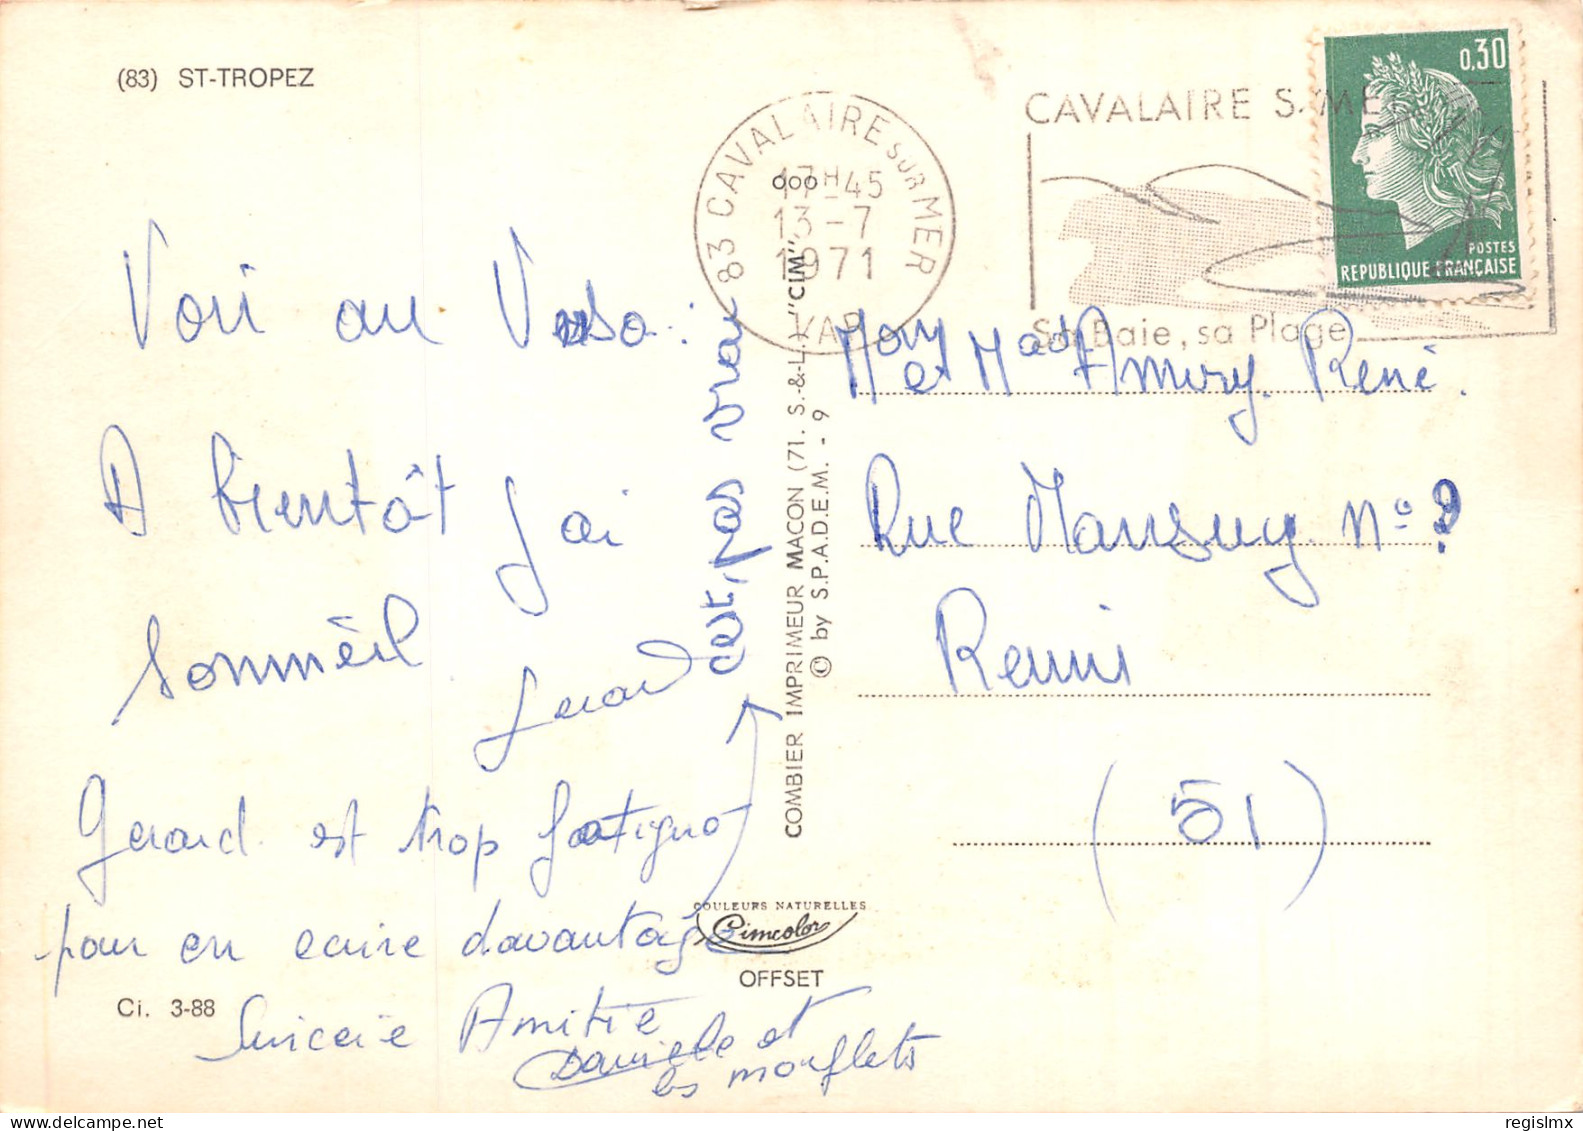 (83) ST-TROPEZ
Voir au Verso :
A bientôt j'ai
sommeil
Gerard
Gerard est trop fatigué
pour en ecrire davantage
Sincerie Amitié
Daniele et
les mouflets
cest pas vrai
Ci. 3-88
83 CAVALAIRE SUR MER
17H45
13-7
1971
VAR
COMBIER IMPRIMEUR MACON (71. S.-&-L.) "CIM"
© by S.P.A.D.E.M. - 9
COULEURS NATURELLES
Cimcolor
OFFSET
CAVALAIRE S/ME
Sa Baie, sa Plage
0,30
POSTES
REPUBLIQUE FRANÇAISE
et Mad Amury René.
Rue Mansuy n°
Reims
(51)
regislmx